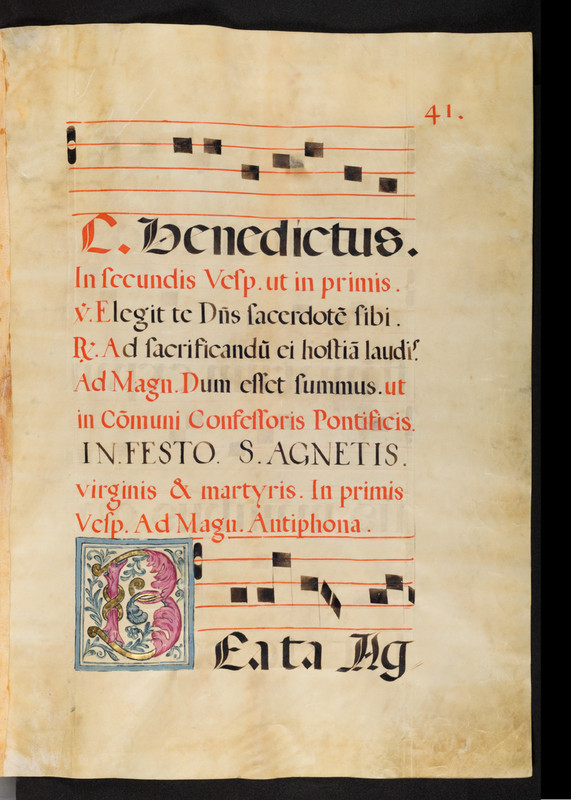 41.
C. Benedictus.
In secundis Vesp. ut in primis.
℣. Elegit te Dñs sacerdotẽ sibi.
℟. Ad sacrificandũ ei hostiã laudis.
Ad Magn. Dum esset summus. ut
in Cõmuni Confessoris Pontificis.
IN. FESTO. S. AGNETIS.
virginis & martyris. In primis
Vesp. Ad Magn. Antiphona.
BEata Ag